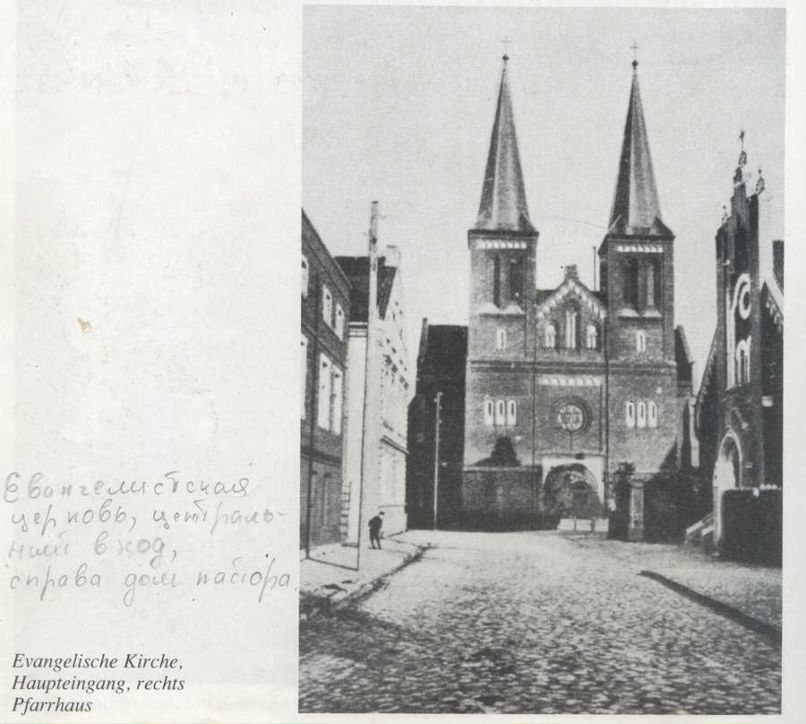 Евангелистская
церковь, централь-
ний вход,
справа дом пастора.
Evangelische Kirche,
Haupteingang, rechts
Pfarrhaus